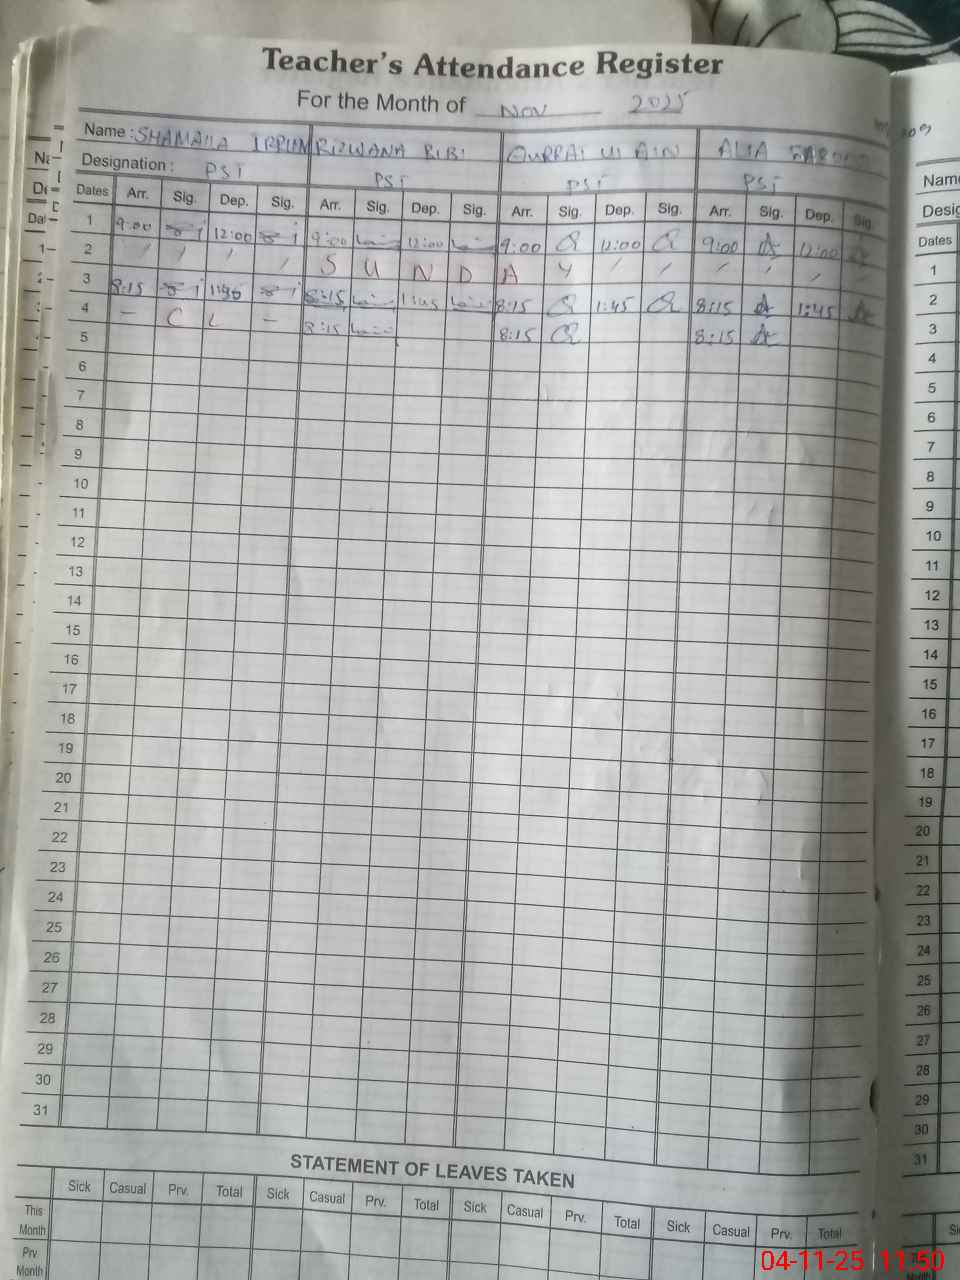 Teacher's Attendance Register
For the Month of Nov 2025
Name : SHAMAILA IRRUM RIZWANA BIBI QURRAT UL AIN ALIA FAROOQ
Designation : PST PST PST PST
Dates Arr. Sig. Dep. Sig. Arr. Sig. Dep. Sig. Arr. Sig. Dep. Sig. Arr. Sig. Dep. Sig.
1 9:00 12:00 9:00 12:00 9:00 12:00 9:00 12:00
2 S U N D A Y
3 8:15 1:45 8:15 1:45 8:15 1:45 8:15 1:45
4 – C L – 8:15 8:15 8:15
5
6
7
8
9
10
11
12
13
14
15
16
17
18
19
20
21
22
23
24
25
26
27
28
29
30
31
STATEMENT OF LEAVES TAKEN
Sick Casual Prv. Total Sick Casual Prv. Total Sick Casual Prv. Total Sick Casual Prv. Total
This Month
Prv Month
Name
Desig
Dates
1
2
3
4
5
6
7
8
9
10
11
12
13
14
15
16
17
18
19
20
21
22
23
24
25
26
27
28
29
30
31
04-11-25 11:50